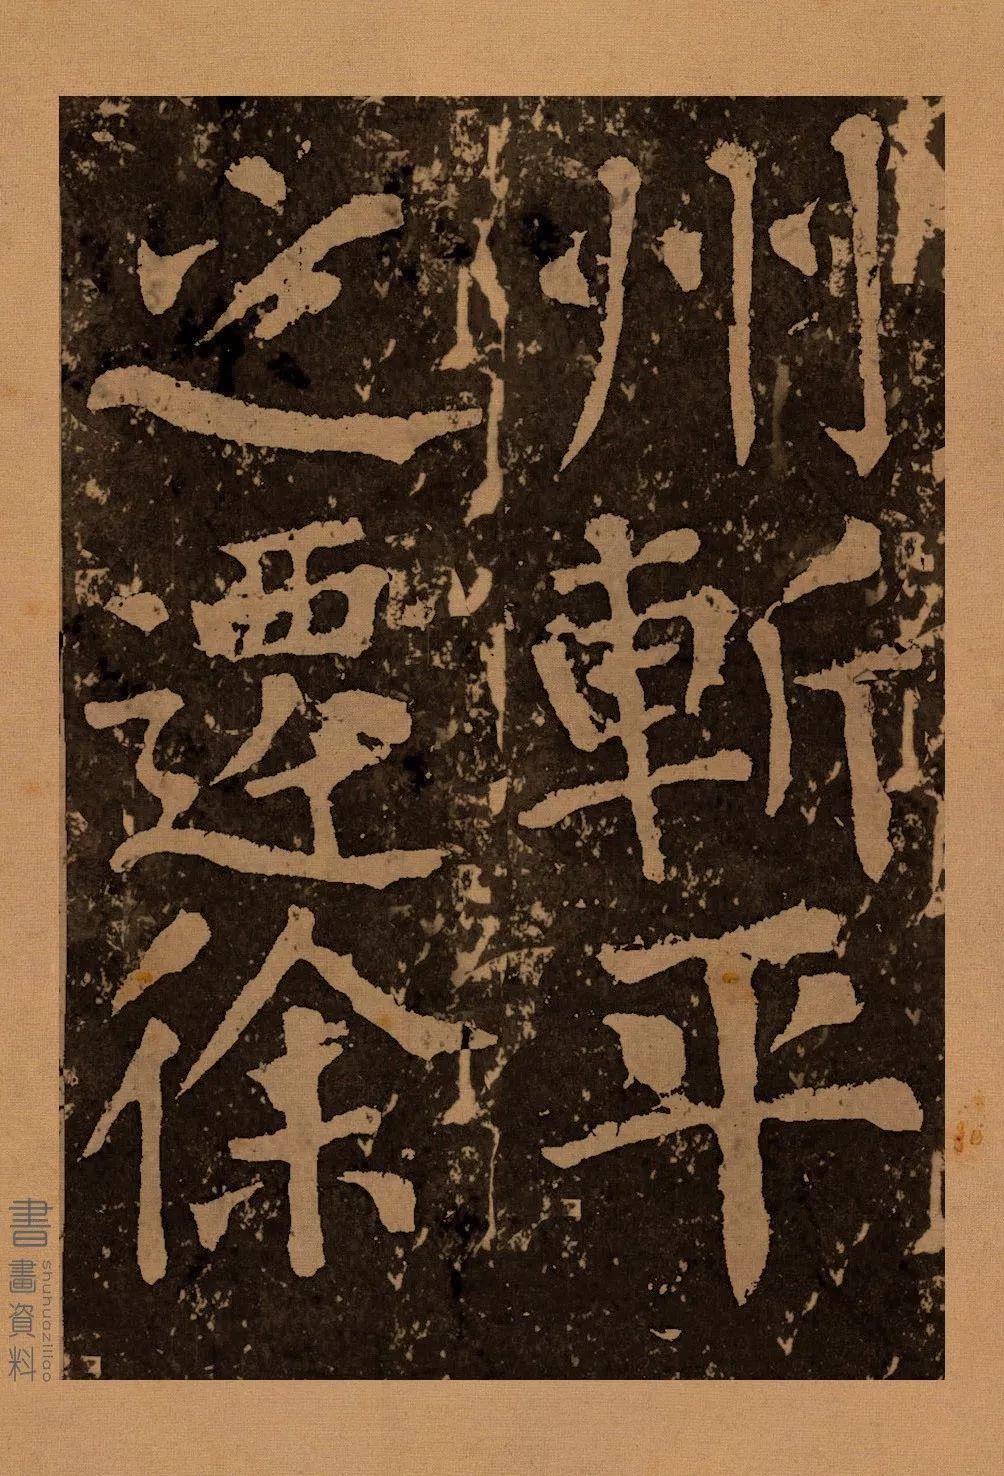 州斬平
之遷徐
書畫資料
shuhuaziliao